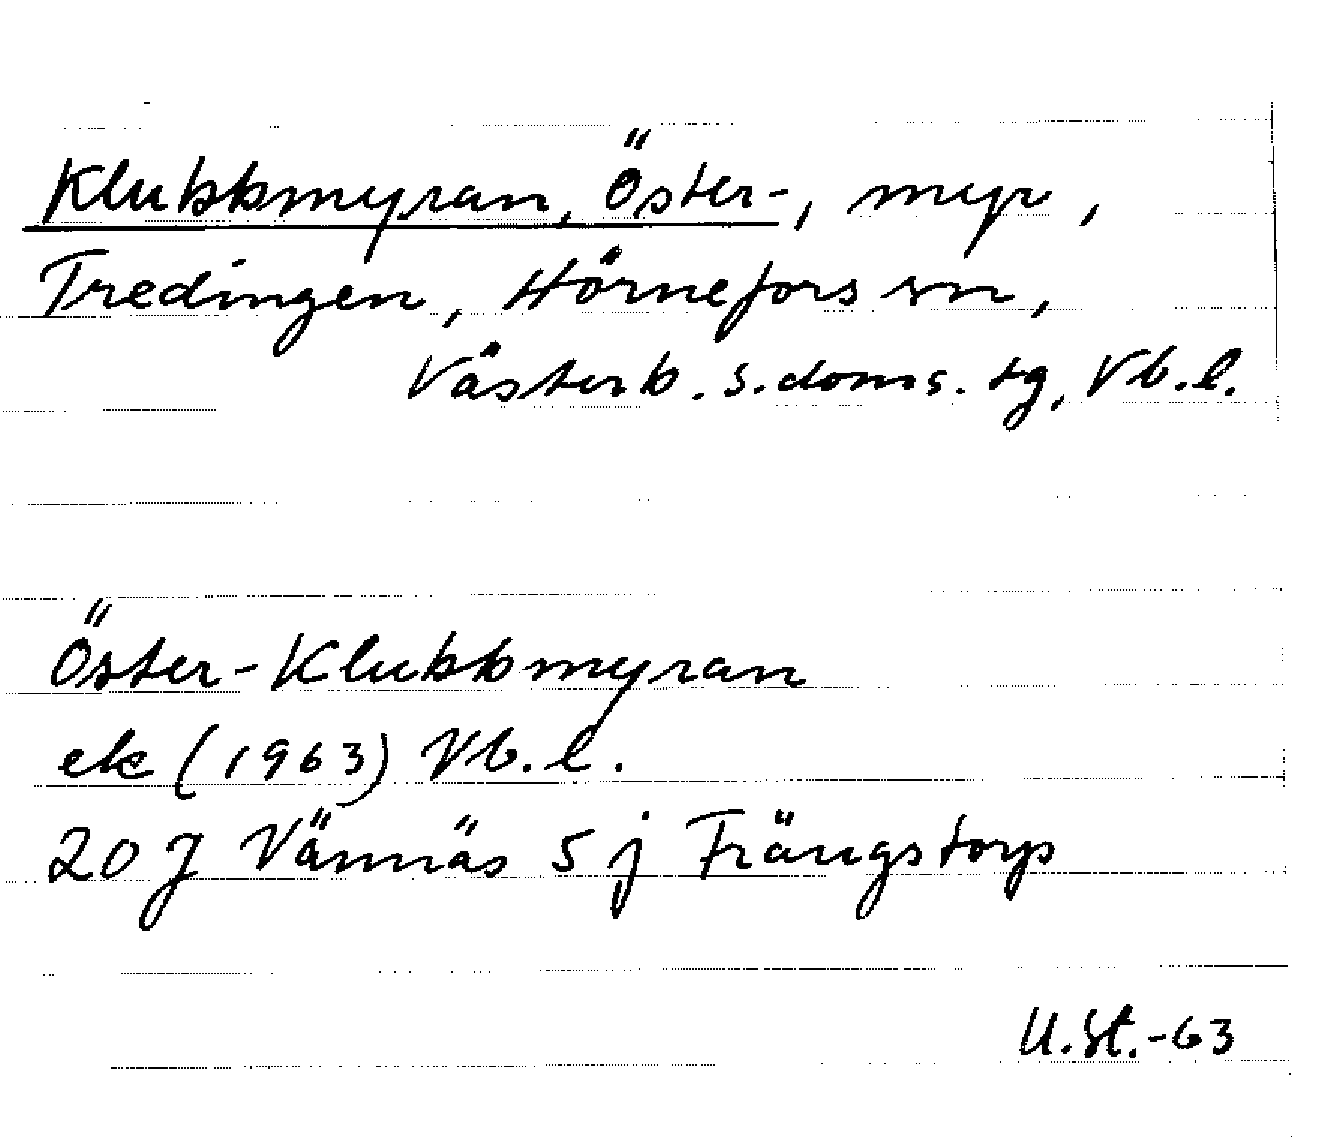 Klubbmyran, Öster-, myr,
Tredingen, Hörnefors sn,
Västerb. s. doms. tg, Vb.l.
Öster-Klubbmyran
ek (1963) Vb.l.
20 J Vännäs 5 j Trängstorp
U.St.-63